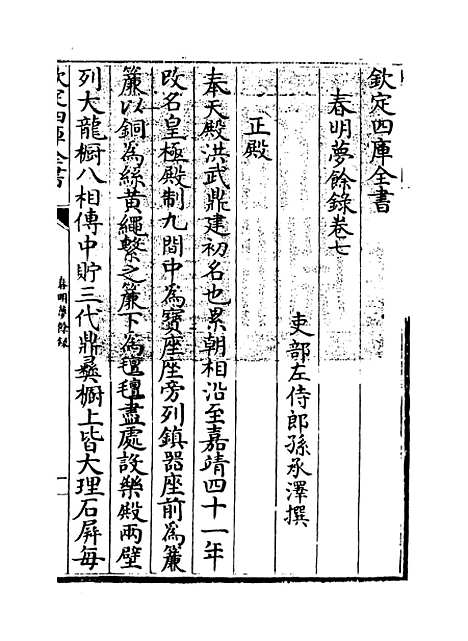 欽定四庫全書
春明夢餘錄卷七
吏部左侍郎孫承澤撰
正殿
奉天殿洪武鼎建初名也累朝相沿至嘉靖四十一年
改名皇極殿制九間中為寶座座旁列鎮器座前為簾
簾以銅為絲黃繩繫之簾下為毯毯盡處設樂殿兩壁
列大龍櫥八相傳中貯三代鼎彝櫥上皆大理石屏每
欽定四庫全書
春明夢餘錄
一